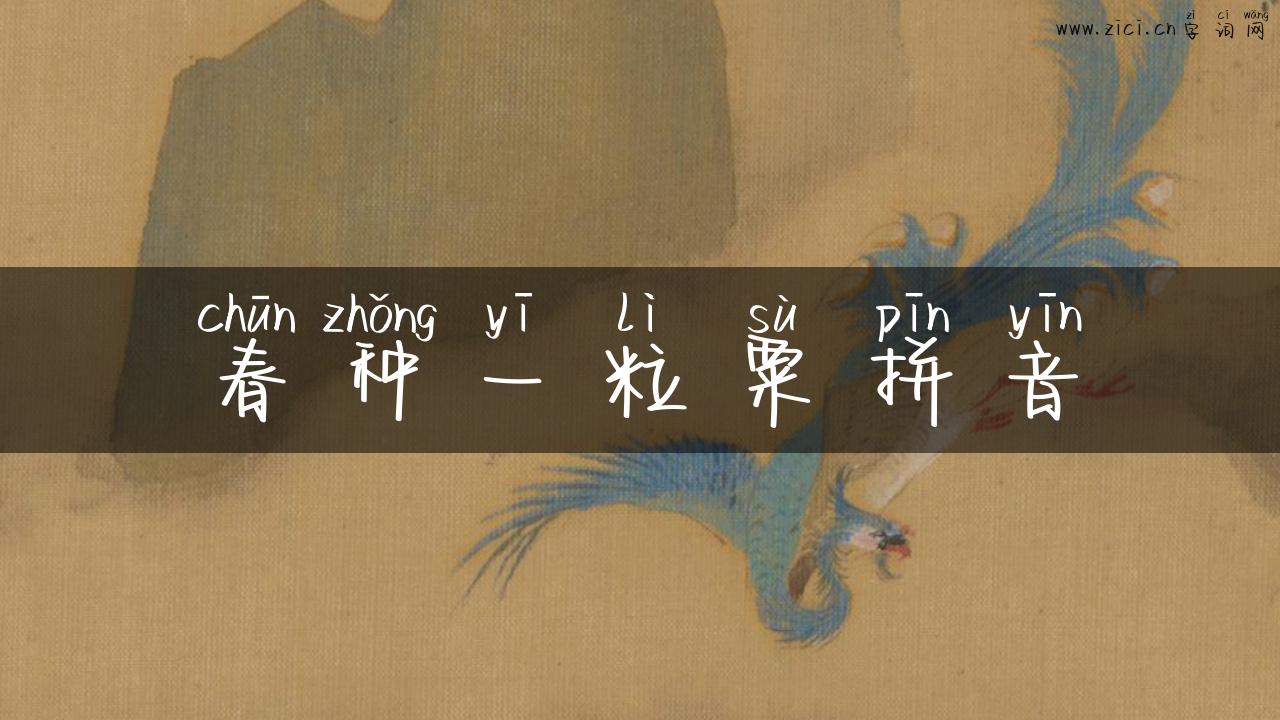 zì cí wǎng
www.zici.cn 字词网
chūn zhǒng yī lì sù pīn yīn
春种一粒粟拼音